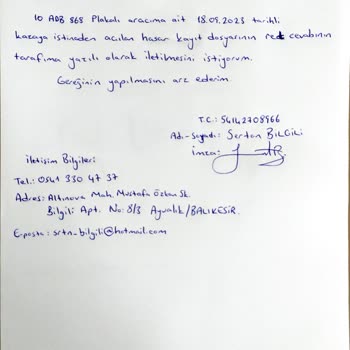 10 ADB 868 Plakalı aracıma ait 18.09.2023 tarihli
kazaya istinaden açılan hasar kayıt dosyasının red cevabının
tarafıma yazılı olarak iletilmesini istiyorum.
Gereğinin yapılmasını arz ederim.
T.C.: 54142708966
Adı-Soyadı: Sertan BİLGİLİ
İmza:
İletişim Bilgileri
Tel.: 0541 330 47 37
Adres: Altınova Mah. Mustafa Özkan Sk.
Bilgili Apt. No: 8/3 Ayvalık/BALIKESİR.
E-posta: srtn_bilgili@hotmail.com